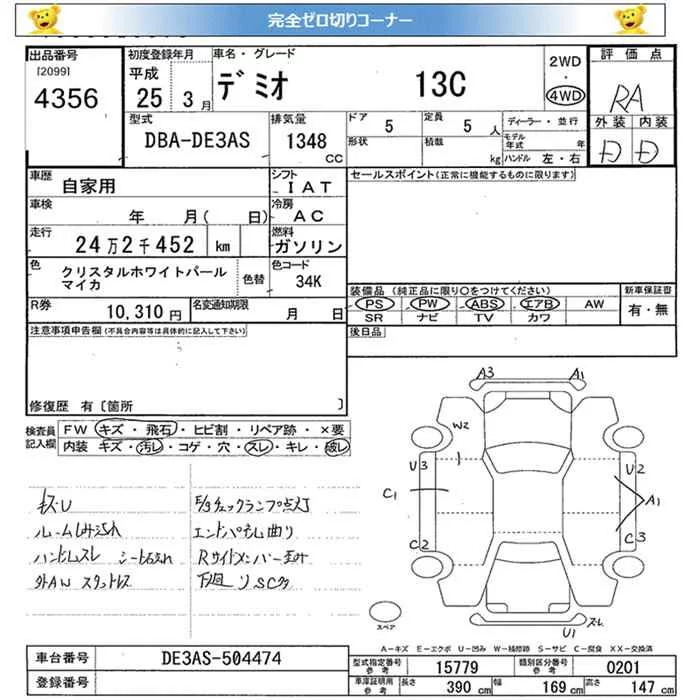 完全ゼロ切りコーナー
出品番号
[2099]
4356
初度登録年月
平成
25 3月
車名・グレード
デミオ 13C
2WD
・
4WD
評価点
RA
外装 内装
D D
型式
DBA-DE3AS
排気量
1348
CC
ドア 5
形状
定員 5 人
積載 kg
ディーラー・並行
モデル年式 年
ハンドル 左・右
車歴
自家用
シフト
IAT
車検
年 月( 日)
冷房
AC
走行
24万2千452 km
燃料
ガソリン
色
クリスタルホワイトパール
マイカ
色替
色コード
34K
R券
10,310円
名変通知期限
月 日
セールスポイント(正常に機能するものに限ります)
装備品(純正品に限り〇をつけてください)
PS PW ABS エアB AW
SR ナビ TV カワ
新車保証書
有・無
後日品
注意事項申告欄(不具合内容等は具体的に記入して下さい)
修復歴 有〔箇所 〕
検査員
記入欄
FW キズ・飛石・ヒビ割・リペア跡・×要
内装 キズ・汚レ・コゲ・穴・スレ・キレ・破レ
キズU
ルームしみ汚れ
ハンドルスレ シート汚れ
外AW スタットレス
E/gチェックランプ点灯
エンドパネル曲り
Rサイドメンバー歪み
下廻りSC多
A3 A1
W2
U3 U2
C1 A1
C2 C3
U1 スレ
スペア
A-キズ E-エクボ U-凹み W-補修跡 S-サビ C-腐食 XX-交換済
車台番号
DE3AS-504474
登録番号
型式指定番号
参考
15779
類別区分番号
参考
0201
車庫証明用
参考
長さ 390 cm 幅 169 cm 高さ 147 cm